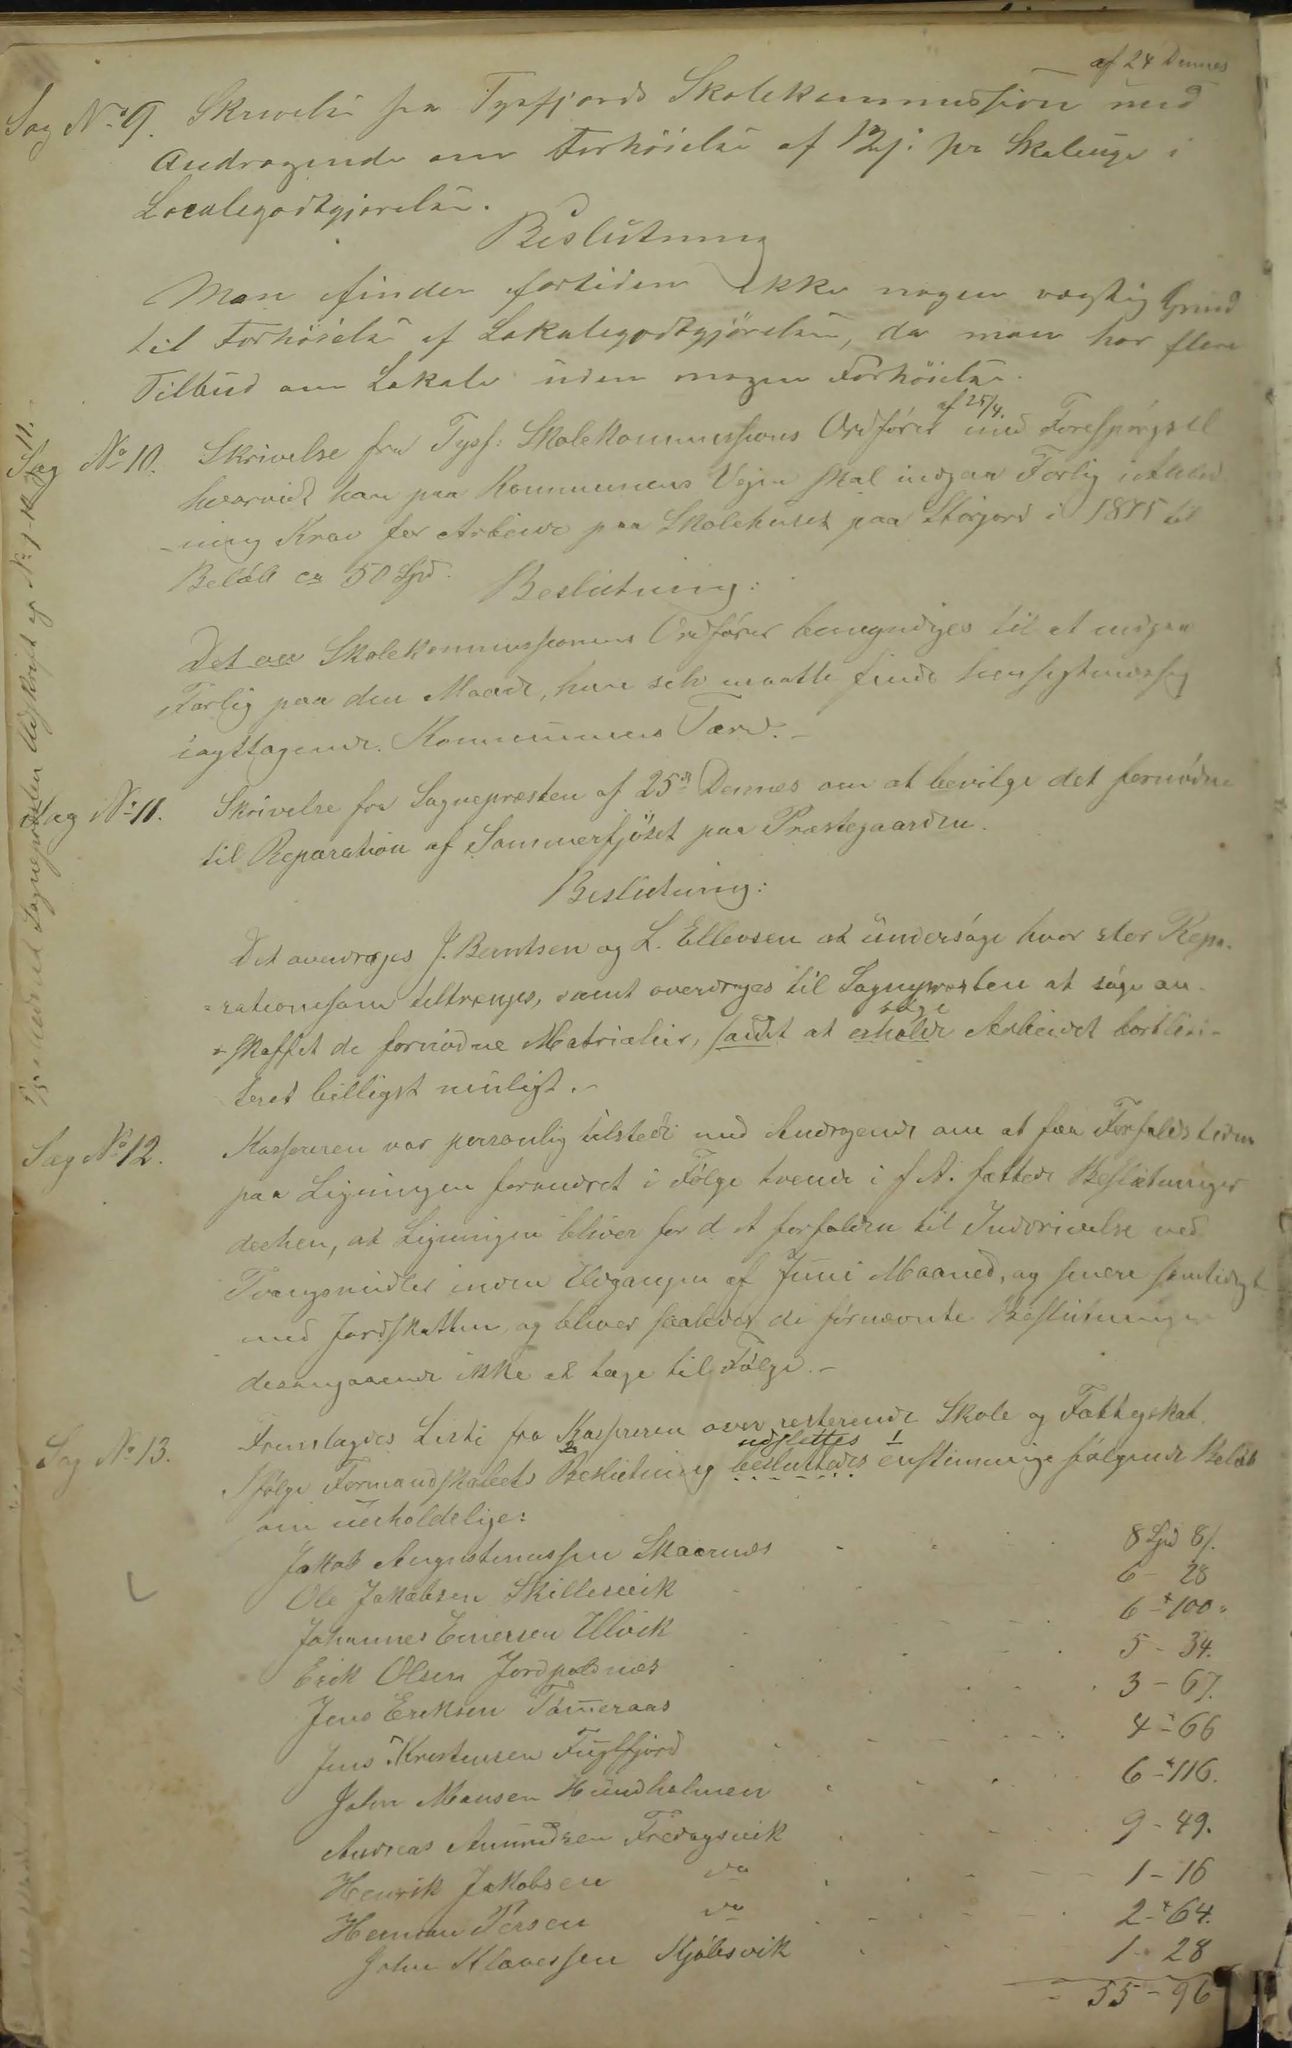 af 24 Dennes
Sag No 9. Skrivelse fra Tysfjords Skolekommission med
Andragende om Forhöielse af 12 s: pr Skoleuge i
Localegodtgjörelse.
Beslutning
Man finder fortiden ikke nogen vægtig Grund
til Forhöielse af Lokalegodtgjörelsen, da man har flere
Tilbud om Lokale uden nogen Forhöielse.
af 25/4.
Sag No 10. Skrivelse fra Tysf: Skolekommissions Ordförer med Forespörgsel
hvorvidt han paa Kommunens Vegne skal indgaa Forlig i Anled
-ning Krav for Arbeide paa Skolehuset paa Storjord i 1875 til
Belöb ca 50 Spd.
Beslutning:
Det ov Skolekommissionens Ordförer bemyndiges til at indgaa
Forlig paa den Maade, han selv maatte finde hensigtmæssig
iagttagende Kommunens Tarv. -
Sag No 11. Skrivelse fra Sognepræsten af 25de Dennes om at bevilge det fornödne
til Reparation af Sommerfjöset paa Præstegaarden.
Beslutning:
Det overdrages J. Berntsen og L. Ellevsen at undersöge hvor stor Repa-
=ration som tiltrænges, samt overdrages til Sognepræsten at söge an-
=skaffet de fornödne Matrialier, samt at erholde Arbeidet bortlici-
söge
teret billigst muligt. -
Sag No 12. Kassereren var personlig tilstede med Andragende om at faa Forfaldstiden
paa Ligningen forandret i Fölge tvende i f. A. fattede Beslutninger
derhen, at Ligningen bliver for d et forfalden til Inddrivelse ved
Tvangsmidler inden Udgangen af Juni Maaned, og senere samtidigt
med Jordskatten og bliver saaledes de förnævnte Beslutninger
desangaaende ikke at tage til Fölge. -
Sag No 13. Fremlagdes Liste fra Kassereren over resterende Skole og Fattigskat.
udslettes
Ifölge Formandskabets Beslutning besluttedes enstemmige fölgende Belöb
som uerholdelige:
Jakob Augustinussen Skaarnes 8 Spd 8 s.
Ole Jakobsen Skillesvik 6 - 28
Johannes Einersen Ulvik 6 - 100 "
Erik Olsen Jordpoldnes 5 - 34.
Jens Eriksen Tömmeraas 3 - 67.
Jens Kristensen Fuglfjord 4 - 66
John Monsen Hundholmen 6 - 116.
Andreas Amundsen Fredagsvik 9 - 49.
Henrik Jakobsen do 1 - 16
Heman Persen do 2 - 64.
John Klavessen Kjöbsvik 1 - 28
55 - 96